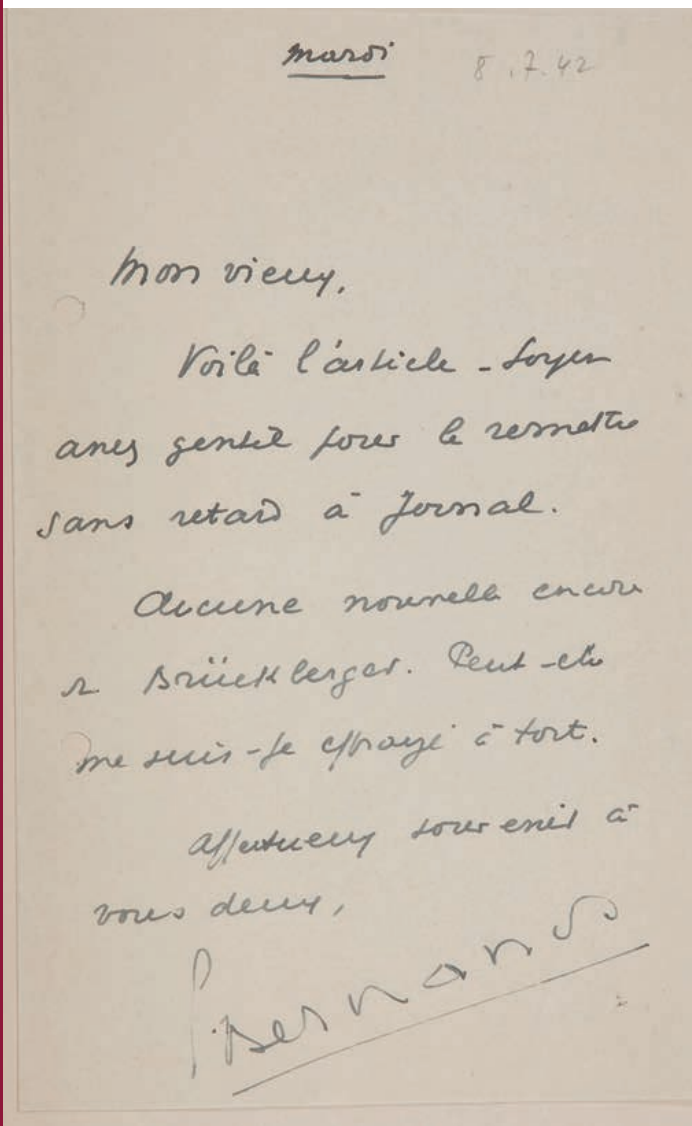 mardi 8.7.42
Mon vieux,
Voilà l'article - Soyez
assez gentil pour le remettre
sans retard à Jornal.
Aucune nouvelle encore
de Brückberger. Peut-être
me suis-je effrayé à tort.
Affectueux souvenir à
vous deux,
G. Bernanos